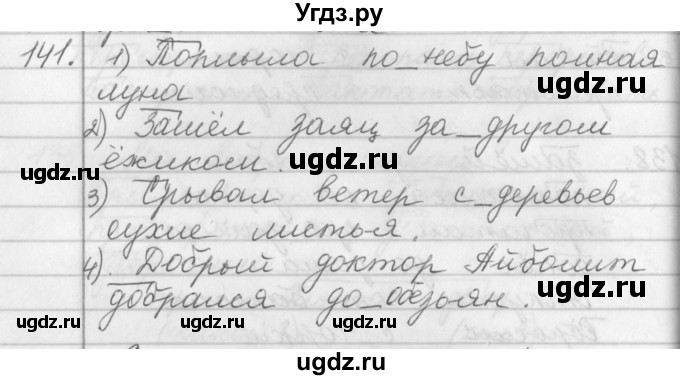 Угдз.ру
141. 1) Поплыла по_небу полная
ugdz.ru
луна
ugdz.ru
2) Зашёл заяц за_другом
ugdz.ru
ёжиком.
ugdz.ru
3) Срывал ветер с_деревьев
ugdz.ru
сухие листь-я.
4). Добрый доктор Айболит
добрался до_обезьян.
ugdz.ru ugdz.ru ugdz.ru
ugdz.ru